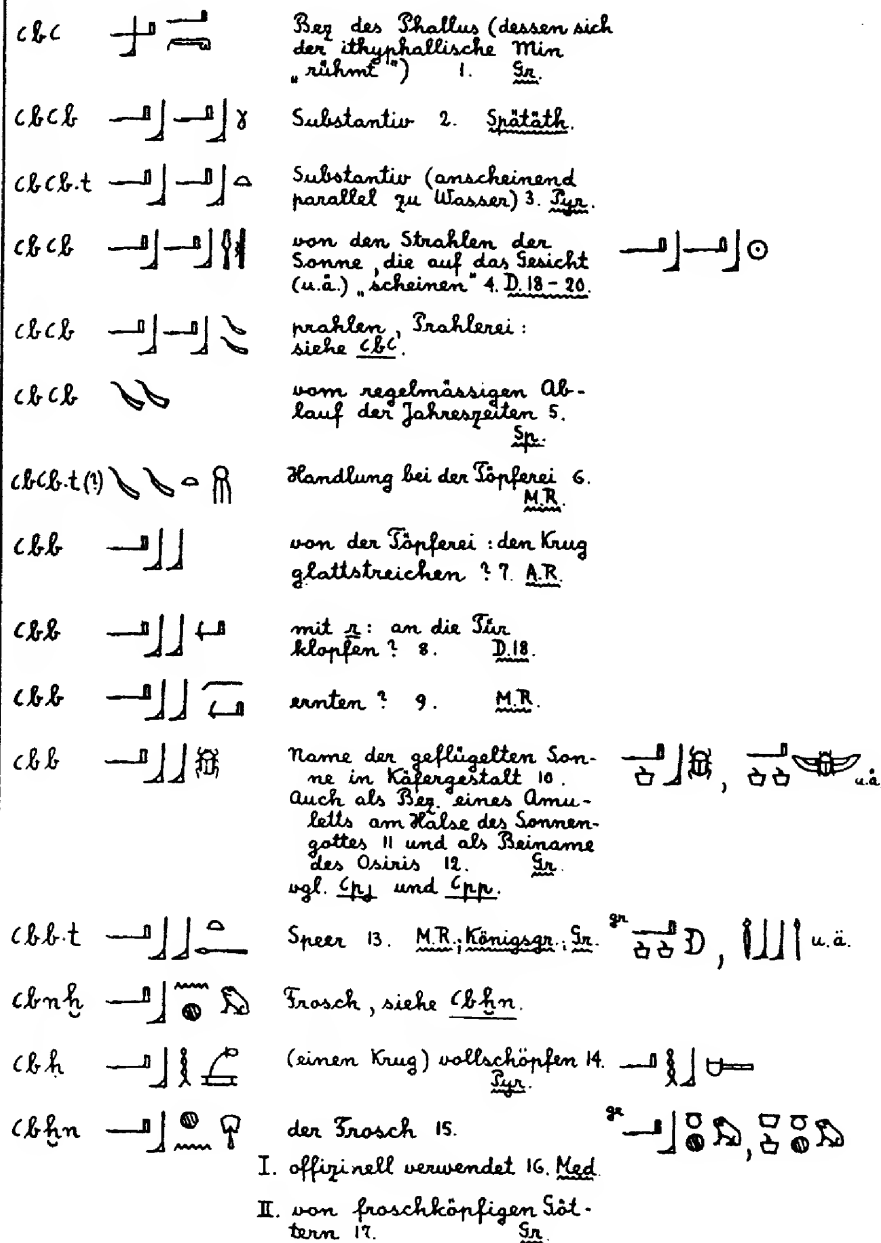 ꜥbꜥ Bez des Phallus (dessen sich
der ithyphallische Min
„rühmt") 1. Gr.
ꜥbꜥb Substantiv 2. Spätäth.
ꜥbꜥb.t Substantiv (anscheinend
parallel zu Wasser) 3. Pyr.
ꜥbꜥb von den Strahlen der
Sonne, die auf das Gesicht
(u.ä.) „scheinen" 4. D. 18-20.
ꜥbꜥb prahlen, Prahlerei:
siehe ꜥbꜥ.
ꜥbꜥb vom regelmässigen Ab-
lauf der Jahreszeiten 5.
Sp.
ꜥbꜥb.t (?) Handlung bei der Töpferei 6.
M.R.
ꜥbb von der Töpferei: den Krug
glattstreichen ? 7. A.R.
ꜥbb mit r: an die Tür
klopfen ? 8. D.18.
ꜥbb ernten ? 9. M.R.
ꜥbb Name der geflügelten Son-
ne in Käfergestalt 10. u.ä
Auch als Bez. eines Amu-
letts am Halse des Sonnen-
gottes 11 und als Beiname
des Osiris 12. Gr.
vgl. ꜥpj und ꜥpp.
ꜥbb.t Speer 13. M.R.; Königsgr.; Gr. gr u.ä.
ꜥbnḫ Frosch, siehe ꜥbḫn.
ꜥbḥ (einen Krug) vollschöpfen 14.
Pyr.
ꜥbḫn der Frosch 15. gr
I. offizinell verwendet 16. Med
II. von froschköpfigen Göt-
tern 17. Gr.